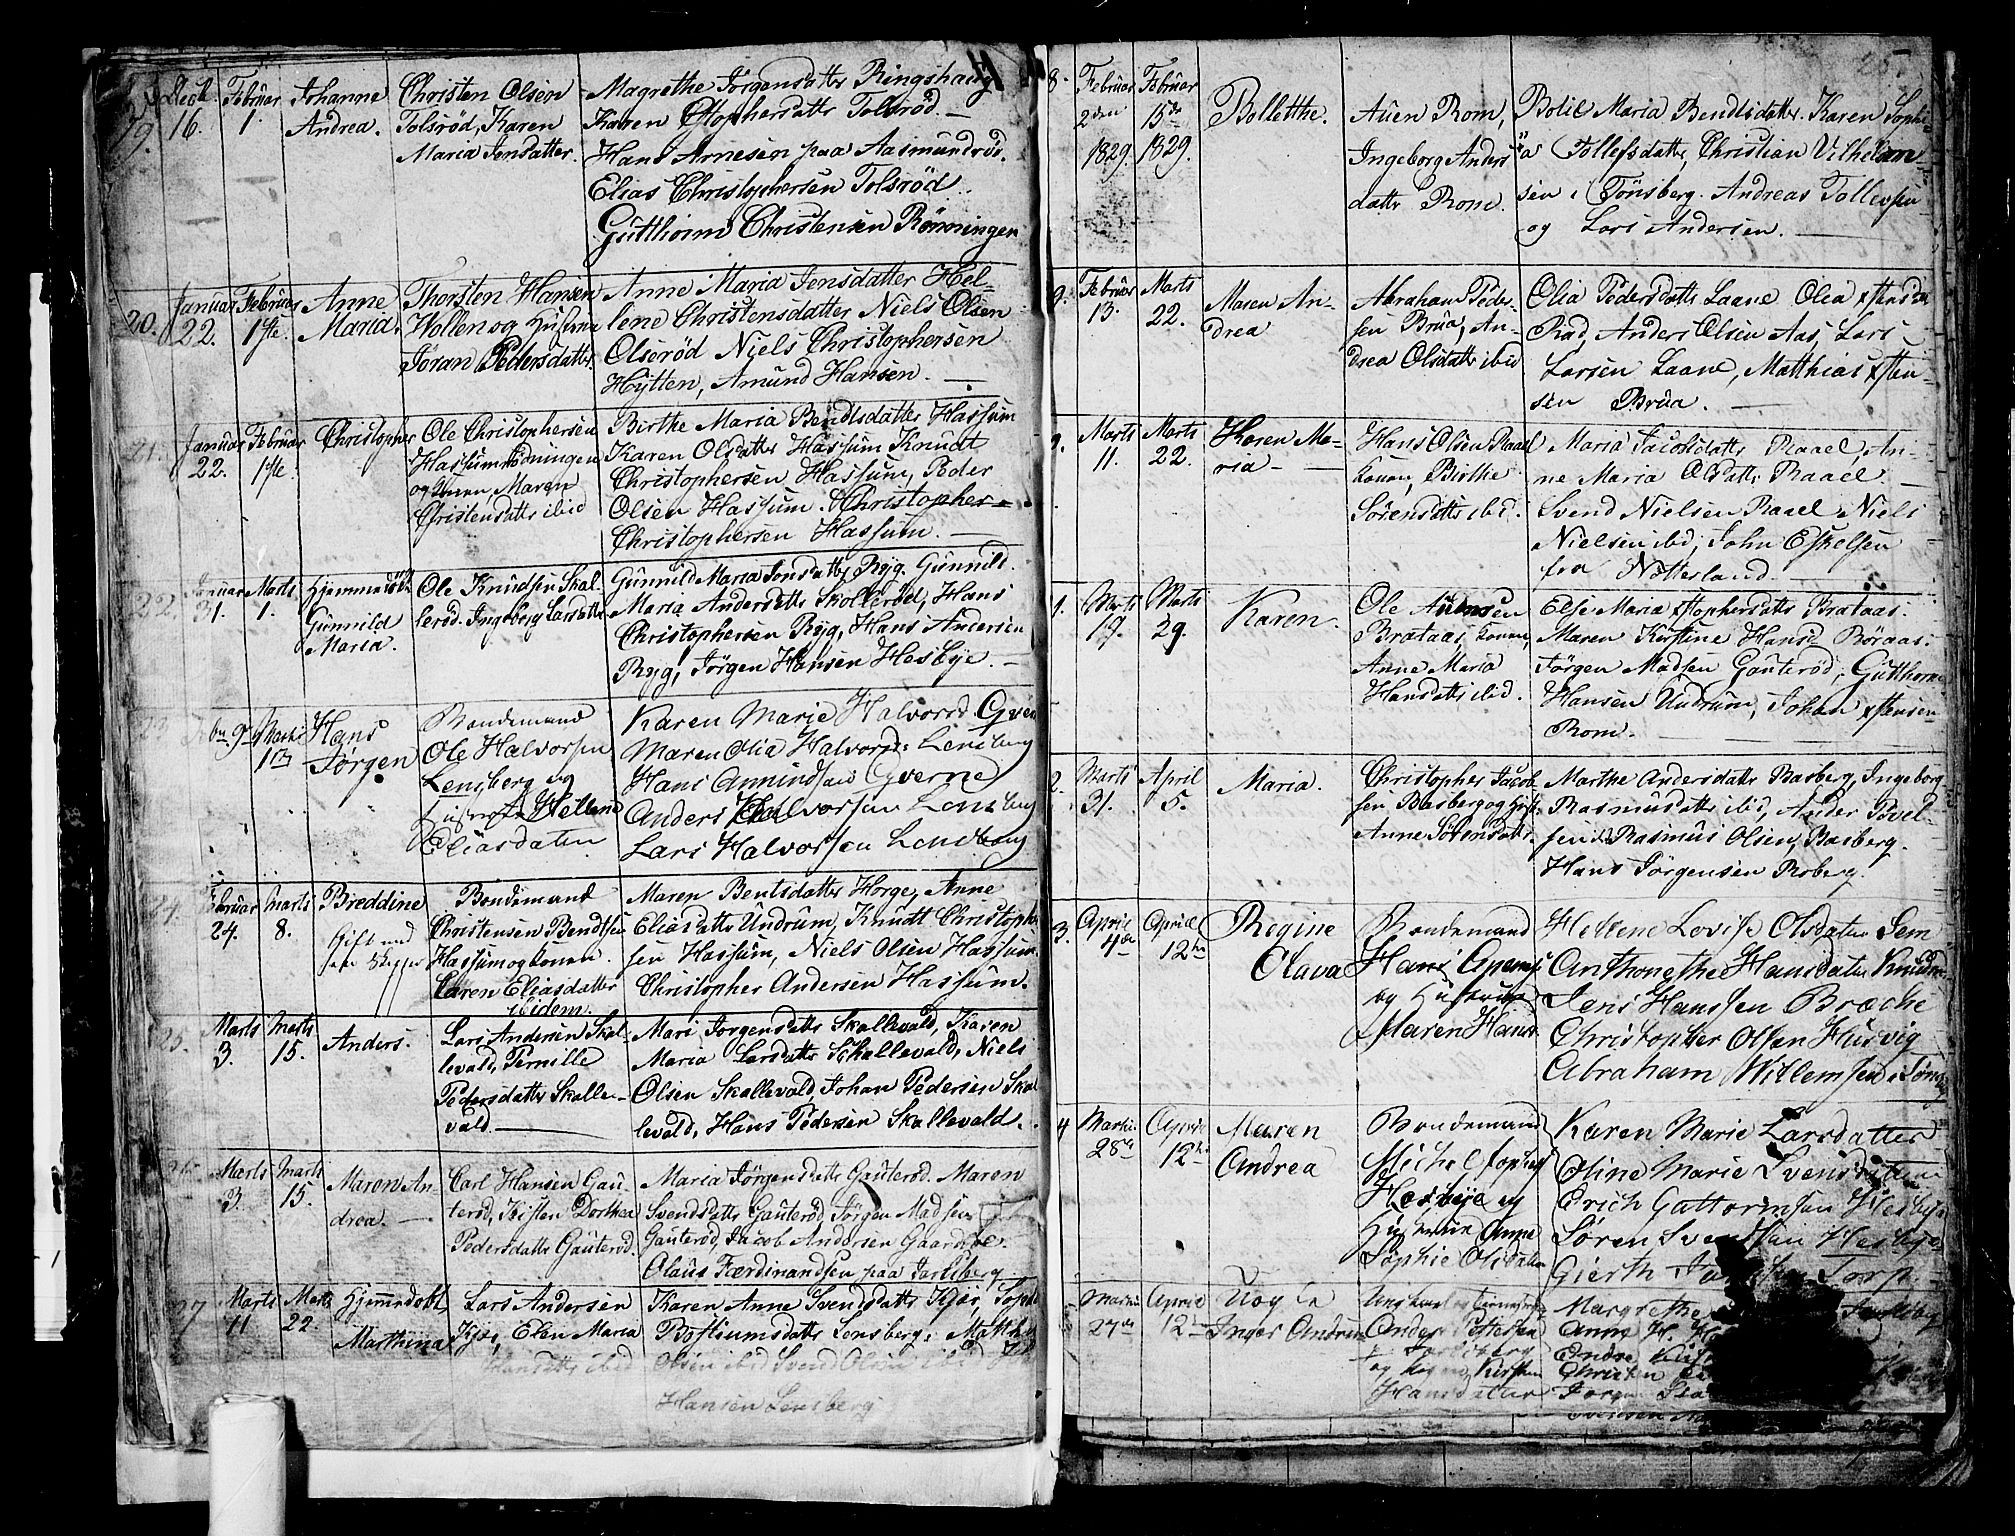 19.
Dect
16.
Februar
1.
Johanne
Andrea.
Christen Olsen
Tolsröd, Karen
Maria Jensdatter.
Magrethe Jörgensdatter Ringshaug
Karen Xstophersdatter Tolsröd. —
Hans Arnesen paa Aasmundröd.
Elias Christophersen Tolsröd.
Gutthorm Christensen Rönningen
20.
Januar
22.
Februar
1ste.
Anne
Maria.
Thorsten Hansen
Wollen og Hustrue
Jöran Pedersdatter.
Anne Maria Jensdatter Hel-
lene Christensdatter Niels Olsen
Olseröd Niels Christophersen
Hÿtten, Amund Hansen. —
21.
Januar
22.
Februar
1ste.
Christopher
Ole Christophersen
Hassumrödningen
og konen, Maren
Christensdatter ibid
Birthe Maria Bendtsdatter Hassum
Karen Olsdatter Hassum Knudt
Christophersen Hassum, Peder
Olsen Hassum. Christopher
Christophersen Hassum. —
22.
Januar
31.
Marts
1.
Hjemmedöbt
Gunnild
Maria.
Ole Knudsen Skal-
leröd. Ingeborg Larsdatter
Gunnild Maria Jonsdatter Ryg. Gunnild.
Maria Andersdatter Skolleröd, Hans
Christophersen Ryg, Hans Andersen
Ryg, Jörgen Hansen Hesbye. —
23.
Hans
Jörgen
Bondemand
Ole Halvorsen
Lensberg og
Hellene
Eliasdatter
Karen Marie Halvorsd. Qvern
Maren Olia Halvorsd: Lensberg
Hans Amundsen Qverne
Anders Halvorsen Lensberg
Lars Halvorsen Lensberg
24.
Februar
24.
Marts
8.
Breddine
Gift med
Bondemand
Christensen Bendtsen
Hassum og konen.
Caren Eliasdatter
ibidem.
Maren Bentsdatter Horge, Anne
Eliasdatter Undrum, Knudt Christopher-
sen Hassum, Niels Olsen Hassum.
Christopher Andersen Hassum.
25.
Marts
3.
Marts
15.
Anders.
Lars Andersen Skal-
levald, Pernille
Pedersdatter Skalle-
vald. —
Mari Jörgensdatter Skallevald, Karen
Maria Larsdatter Skallevald, Niels
Olsen Skallevald, Johan Pedersen Skal-
levald, Hans Pedersen Skallevald.
26.
Marts
3.
Marts
15.
Maren An-
drea. —
Carl Hansen Gau-
teröd, Kisten Dorthea
Pedersdatter Gauteröd.
Maria Jörgensdatter Gauteröd. Maren
Svendsdatter Gauteröd, Jörgen Madsen
Gauteröd, Jacob Andersen Gaardbye.
Olaus Færdinandsen paa Jarlsberg
27
Marts
11
Marts
22.
Hjemmdöbt
Marthina
Lars Andersen
Kjær, Elen Maria
Hansdatter ibid
Karen Anne Svendsdatter Kjær, Sophie
Bostiumsdatter Lensberg, Matthis
Olsen ibid Svend Olsen ibid
Hansen Lensberg
25.
8.
Februar
2den
1829.
Februar
15de
1829.
Bolletthe.
Auen Rom,
Ingeborg Anders
datter Rom.
Bolil Maria Bendtsdatter. Karen Sophi-
"a Tollefsdatter, Christian Vilhelm
sen i Tönsberg. Andreas Tollevsen
og Lars Andersen. —
9.
Februar
13.
Marts
22.
Maren An-
drea
Abraham Peder-
sen Brua, An-
drea Olsdatter ibid
Olia Pedersdatter Laane Olea Xstensdatter
Rod, Anders Olsen Aas, Lars
Larsen Laane, Matthias Xsten-
sen Brua. —
Marts
11.
Marts
22.
Karen Ma-
ria —
Hans Olsen Raael
konen, Birthe
Sörensdatter ibid.
Maria Jacobsdatter Raael, An-
ne Maria Olsdatter Raael. —
Svend Nielsen Raael Niels
Nielsen ibid, John Eskelsen
fra Nötterland. —
1.
Marts
19.
Marts
29.
Karen.
Ole Auensen
Brataas, konen,
Anne Maria
Hansdatter ibid.
Else Maria Xstophersdatter Brataas.
Maren Kirstine Hansd Böraas.
Jörgen Madsen Gauteröd, Gutthorm
Hansen Undrum, Johan Xstensen
Rom. —
2.
Marts
31.
April
5.
Maria.
Christopher Jacob-
sen Basberg og
Anne Sörensdatter
Marthe Andersdatter Basberg, Ingeborg
Rasmusdatter ibid, Ander Povel-
sen ibid Rasmus Olsen Basberg.
Hans Jörgensen Roberg.
3.
April
4de
April
12te
Regine
Olava
Bondemand
Hans
og Hustrue
Maren Hans
Hellene Lovise Olsdatter Sem
Anthonethe Hansdatter
Jens Hanssen Bræche
Christopher Olsen Husvig
Abraham Willemsen i Töns
4
Martii
28de
April
12te
Maren
Andrea
Bondemand
Michel
Hesbye og
Hustrue Anne
Sophie Olsdatter
Karen Marie Larsdatter
Oline Marie Svensdatter
Erich Gattormsen Hesbye
Sören Svensen Hesbye
Gierth Torp
Martii
27de
April
12te
Inger Andrea
Anders Pettersen
Jarlsberg
og Kirsten
Hansdatter
Margrethe
Anne H.
Endre
Christen
Jörgen
Svensen